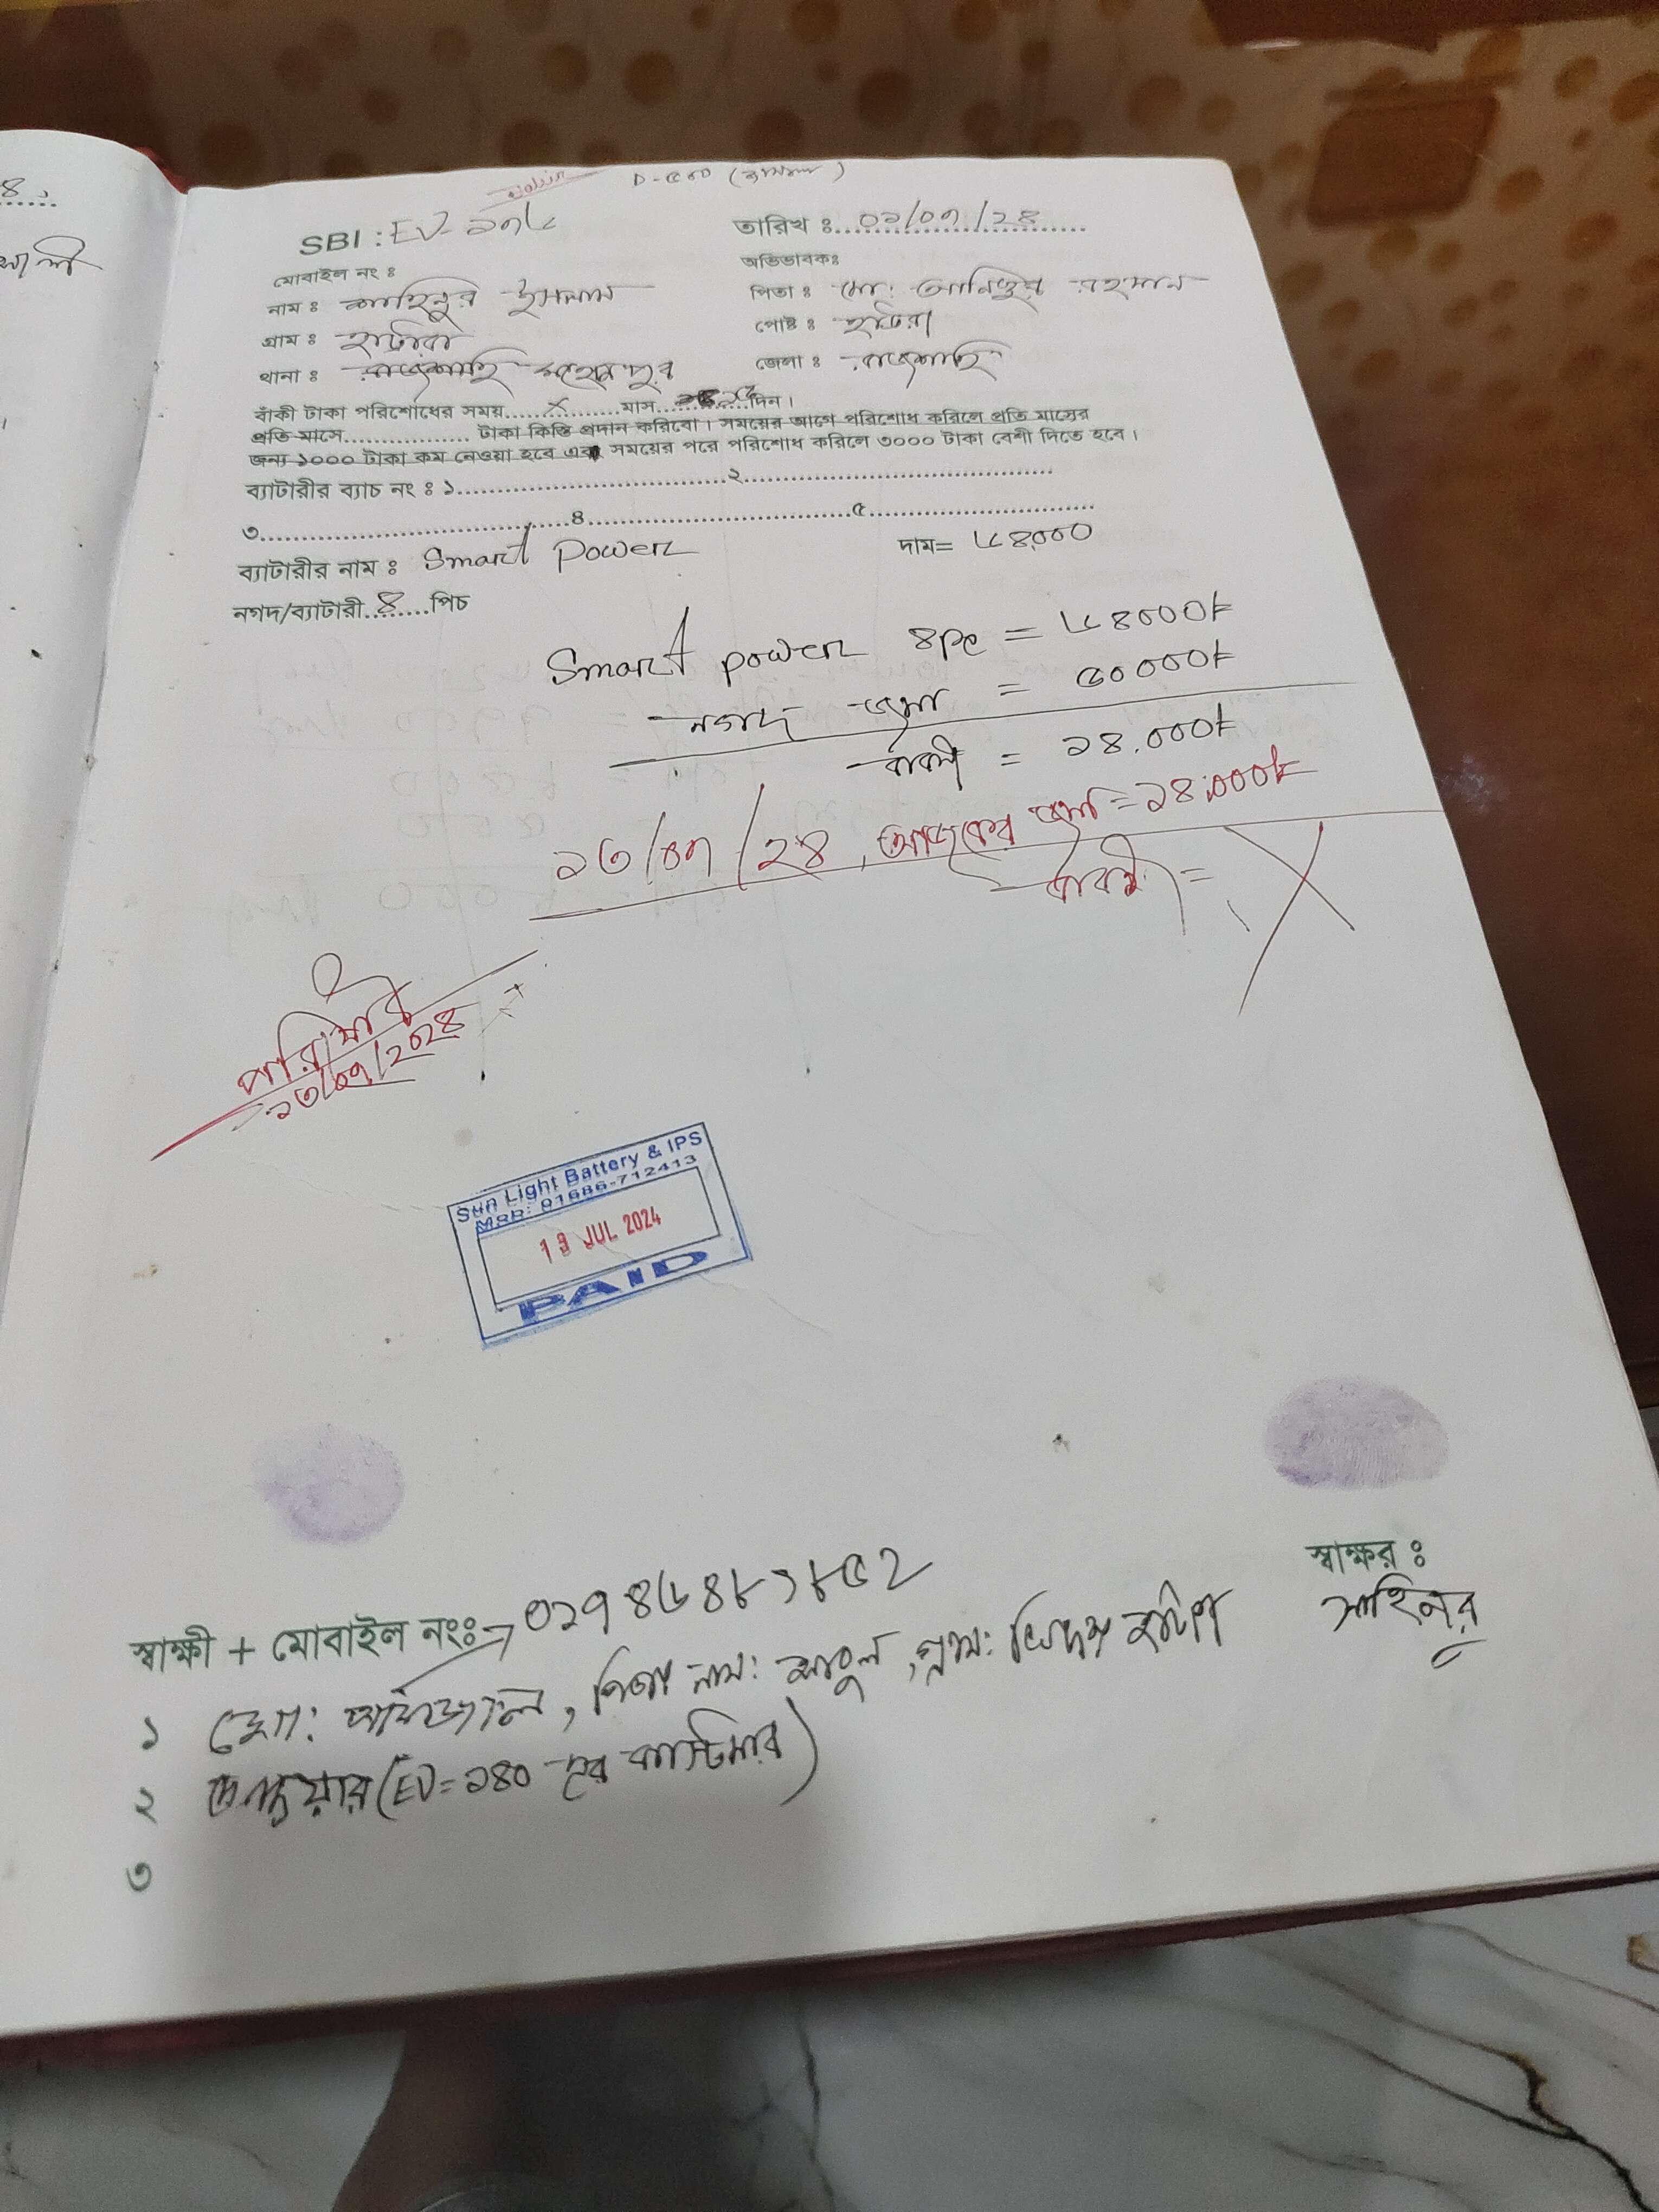 D-৫৩০
SBI : EV-১৭৬
তারিখ ঃ ০১/০৭/২৪
মোবাইল নং ঃ
অভিভাবকঃ
নাম ঃ শাহিনুর ইসলাম
পিতা ঃ মো: আনিছুর রহমান
গ্রাম ঃ হাটরা
পোষ্ট ঃ হাটরা
থানা ঃ রাজশাহি
জেলা ঃ রাজশাহি
বাঁকী টাকা পরিশোধের সময়......X......মাস............দিন।
প্রতি মাসে.................. টাকা কিস্তি প্রদান করিবো। সময়ের আগে পরিশোধ করিলে প্রতি মাসের
জন্য ১০০০ টাকা কম নেওয়া হবে এবং সময়ের পরে পরিশোধ করিলে ৩০০০ টাকা বেশী দিতে হবে।
ব্যাটারীর ব্যাচ নং ঃ ১........................২........................
৩........................৪........................৫........................
ব্যাটারীর নাম ঃ Smart Power
দাম= ৬৪,০০০
নগদ/ব্যাটারী..৪....পিচ
Smart power ৪pc = ৬৪০০০৳
নগদ জমা = ৫০০০০৳
বাকী = ১৪,০০০৳
১৩/০৭/২৪, আজকের জমা = ১৪,০০০৳
বাকী = X
পরিশোধ
১৩/০৭/২০২৪
Sun Light Battery & IPS
MOB: 01686-712413
13 JUL 2024
PAID
স্বাক্ষর ঃ
শাহিনুর
স্বাক্ষী + মোবাইল নংঃ
১ মো: , পিতা নাম: , গ্রাম:
২ (EV=১৪০ নং কাস্টমার)
৩